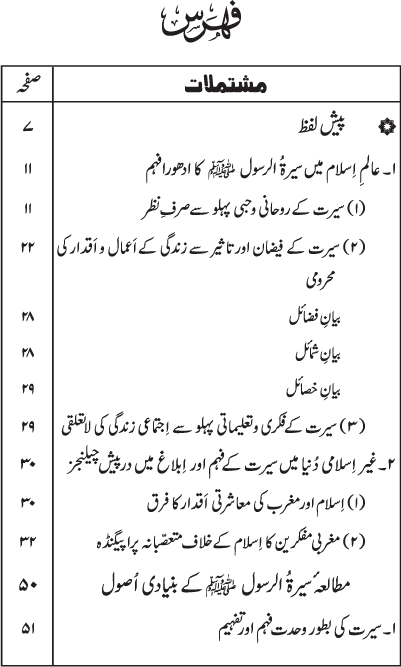 فہرس
مشتملات صفحہ
پیش لفظ ۷
۱۔ عالمِ اِسلام میں سیرۃُ الرسول ﷺ کا ادھورا فہم ۱۱
(۱) سیرت کے روحانی و حبی پہلو سے صرفِ نظر ۱۱
(۲) سیرت کے فیضان اور تاثیر سے زندگی کے اَعمال و اَقدار کی ۲۲
محرومی
بیانِ فضائل ۲۸
بیانِ شمائل ۲۸
بیانِ خصائل ۲۹
(۳) سیرت کے فکری و تعلیماتی پہلو سے اِجتماعی زندگی کی لاتعلقی ۲۹
۲۔ غیر اسلامی دُنیا میں سیرت کے فہم اور اِبلاغ میں درپیش چیلنجز ۳۰
(۱) اِسلام اور مغرب کی معاشرتی اَقدار کا فرق ۳۰
(۲) مغربی مفکرین کا اِسلام کے خلاف متعصّبانہ پراپیگنڈہ ۳۲
مطالعۂ سیرۃُ الرسول ﷺ کے بنیادی اُصول ۵۰
۱۔ سیرت کی بطور وحدت فہم اور تفہیم ۵۱